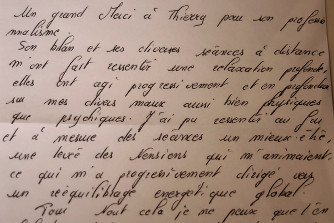 Un grand Merci à Thierry pour son profession-
nalisme.
Son bilan et ses diverses séances à distance
m'ont fait ressentir une relaxation profonde,
elles ont agi progressivement et en profondeur
sur mes divers maux aussi bien physiques
que psychiques. J'ai pu ressentir au fur
et à mesure des séances un mieux-être,
une levée des tensions qui m'animaient
ce qui m'a progressivement dirigé vers
un rééquilibrage énergétique global.
Pour tout cela je ne peux que